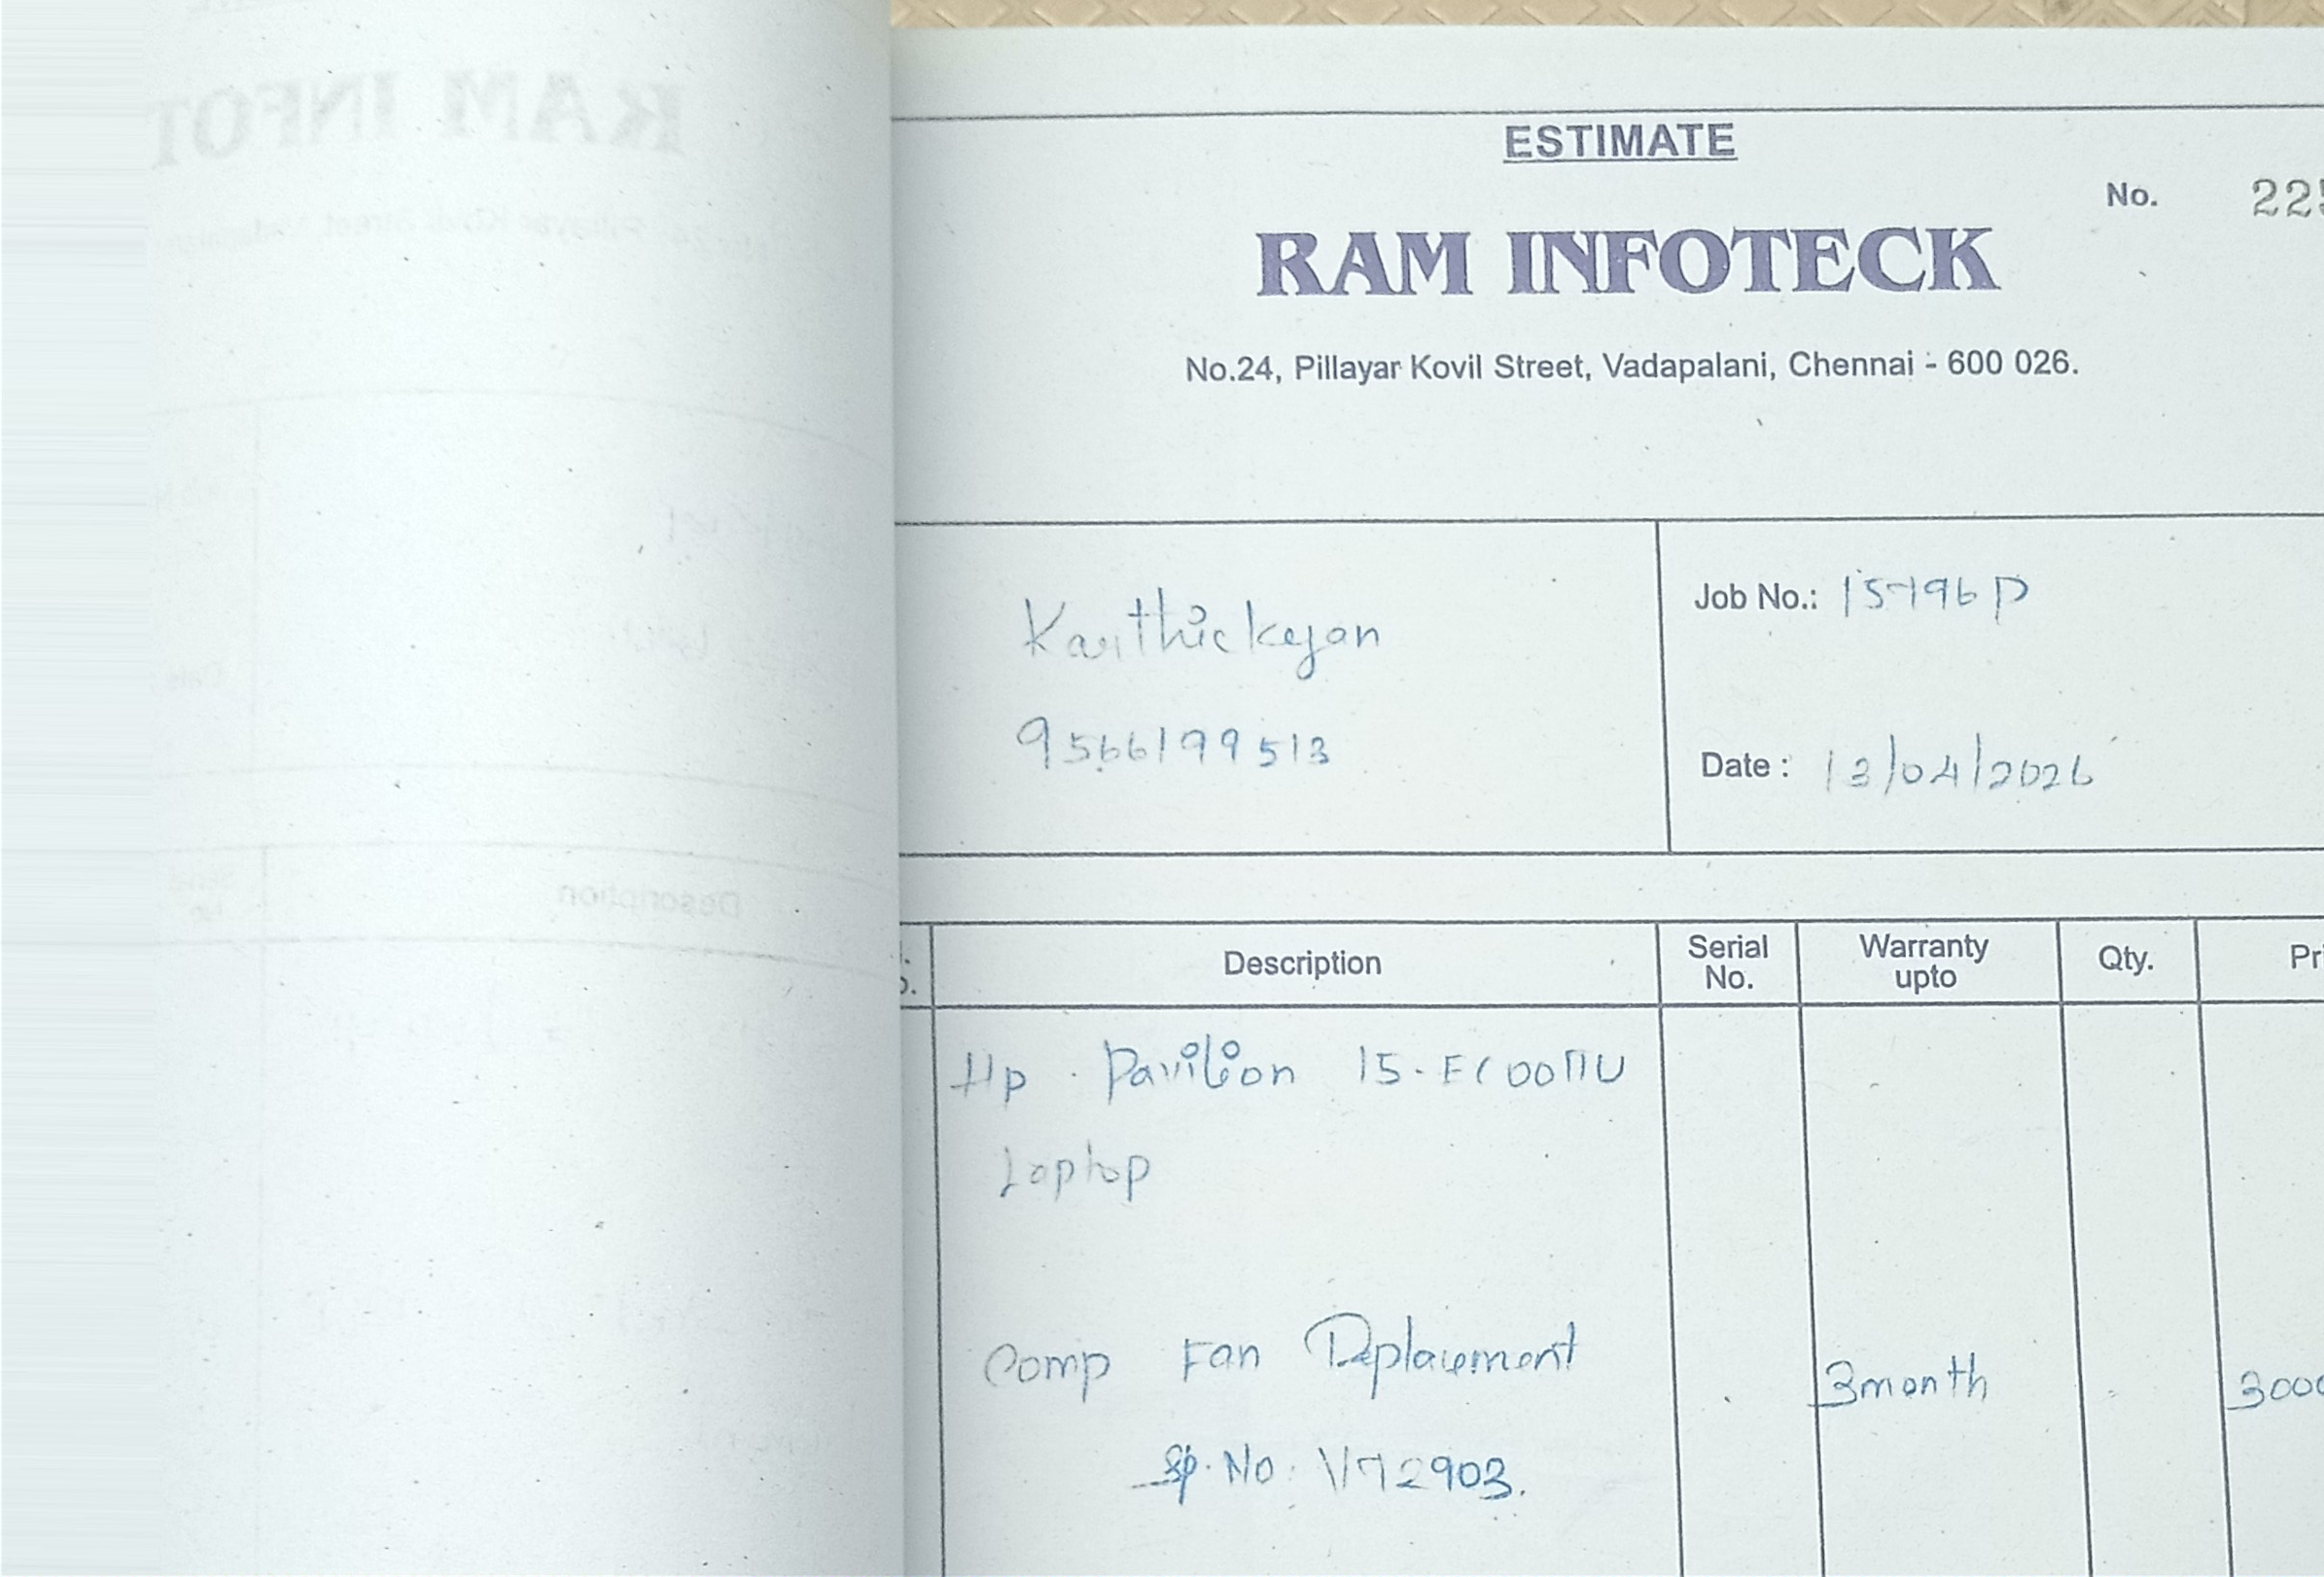 ESTIMATE
No. 225
RAM INFOTECK
No.24, Pillayar Kovil Street, Vadapalani, Chennai - 600 026.
Karthickeyan
9566199513
Job No.: 15796P
Date : 13/04/2026
Description
Serial No.
Warranty upto
Qty.
Pri
Hp . Pavilion 15-
Laptop
Comp Fan Replacement
3month
3000
Sp. No: V72903.